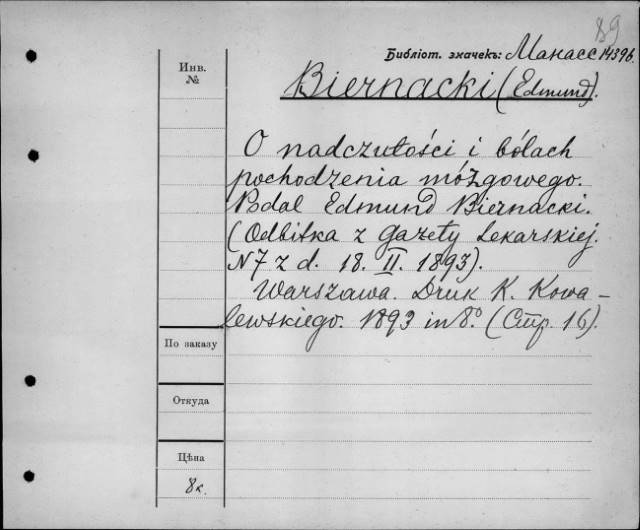 89
Библіот. значекъ: Манасс 14396.
Инв.
№
Biernacki (Edmund).
O nadczułości i bólach
pochodzenia mózgowego.
Podał Edmund Biernacki.
(Odbitka z Gazety Lekarskiej.
N 7 z d. 18. II. 1893).
Warszawa. Druk K. Kowa-
lewskiego. 1893 in 8°. (Стр. 16).
По заказу
Откуда
Цѣна
8к.